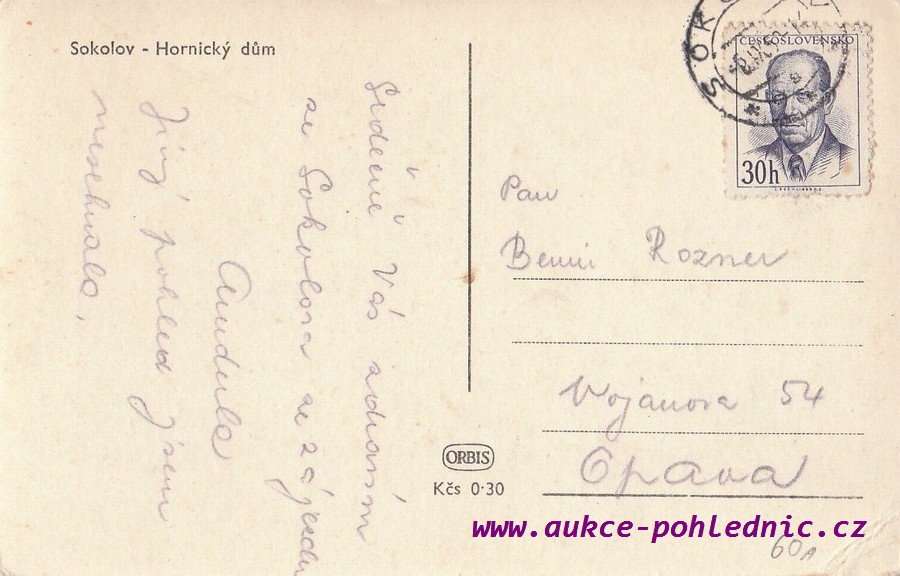 Sokolov - Hornický dům
Srdečně Vás zdravím
ze Sokolova ze zájezdu
Andula
Jiný pohled jsem
nesehnala.
Pan
Benni Rozner
Vojanova 54
Opava
ORBIS
Kčs 0·30
ČESKOSLOVENSKO
30h
SOKO
www.aukce-pohlednic.cz
60A